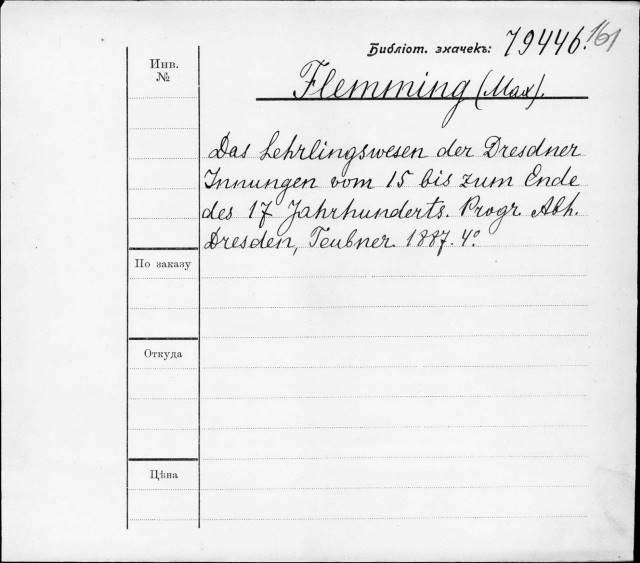 Библіот. значекъ: 79446. 161
Инв.
№
Flemming (Max).
Das Lehrlingswesen der Dresdner
Innungen vom 15 bis zum Ende
des 17 Jahrhunderts. Progr. Abh.
Dresden, Teubner 1887. 4º
По заказу
Откуда
Цѣна